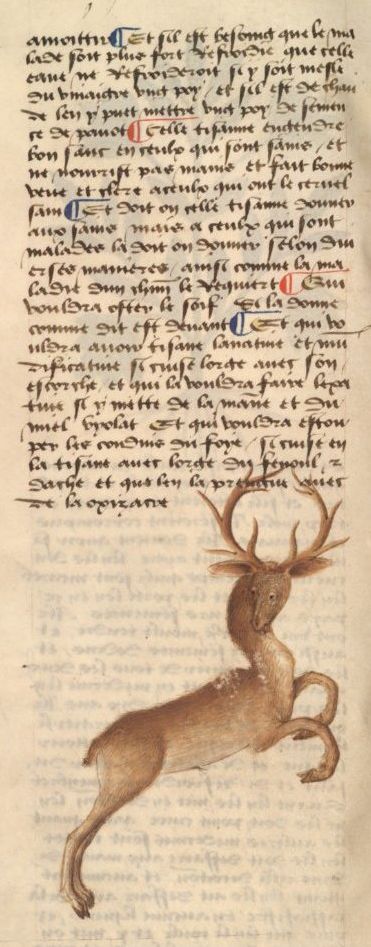 amoittir ¶ Et sil est besoing que le ma
lade soit plus fort refroidie que celle
eaue ne refroideroit si y soit mesle
du vinaigre ung poy / et sil est de chau
de len y puet mettre ung poy de semen
ce de pavot ¶ Celle tisanne engendre
bon sanc en ceulx qui sont sains / et
ne nourrist pas mains et fait bonne
veue et clere a ceulx qui ont le cervel
sain ¶ Et doit on celle tisanne donner
aux sains / mais a ceulx qui sont
malades la doit on donner selon div
erses manieres / ainsi comme la ma
ladie dun chun le requiert ¶ Qui
vouldra oster le soif Si la donne
comme dit est devant ¶ Et qui vo
uldra avoir tisane lavative et mu
dificative si cuise lorge avec son
escorche / et qui la vouldra faire lexa
tive si y mette de la mane et du
miel violat Et qui vouldra estou
per les conduis du foye / si cuise en
la tisane avec lorge du fenoul / et
dache et que len la preingne avec
de la oxizacre